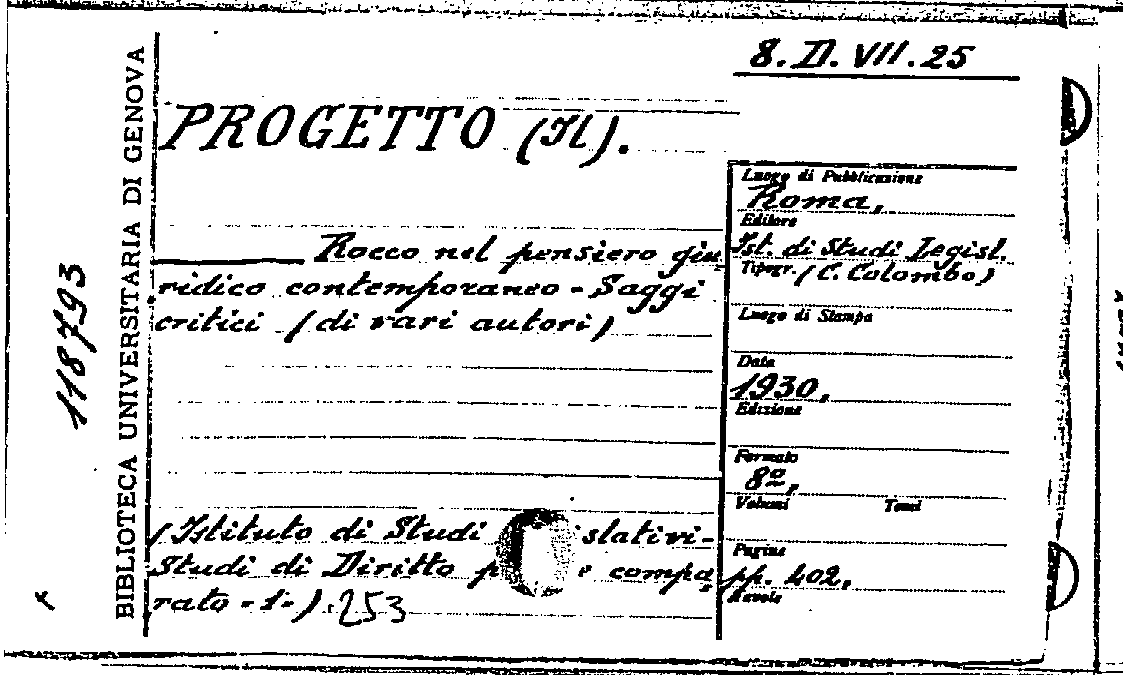 8. D. VII. 25
PROGETTO (Il).
Rocco nel pensiero giu
ridico contemporaneo - Saggi
critici (di vari autori)
(Istituto di Studi islativi-
Studi di Diritto p e compa
rato - 1 - ). 253
Luogo di Pubblicazione
Roma,
Editore
Ist. di Studi Legisl.
Tipogr. (C. Colombo)
Luogo di Stampa
Data
1930,
Edizione
Formato
8º,
Volumi Tomi
Pagine
pp. 402,
Tavole
BIBLIOTECA UNIVERSITARIA DI GENOVA
118793